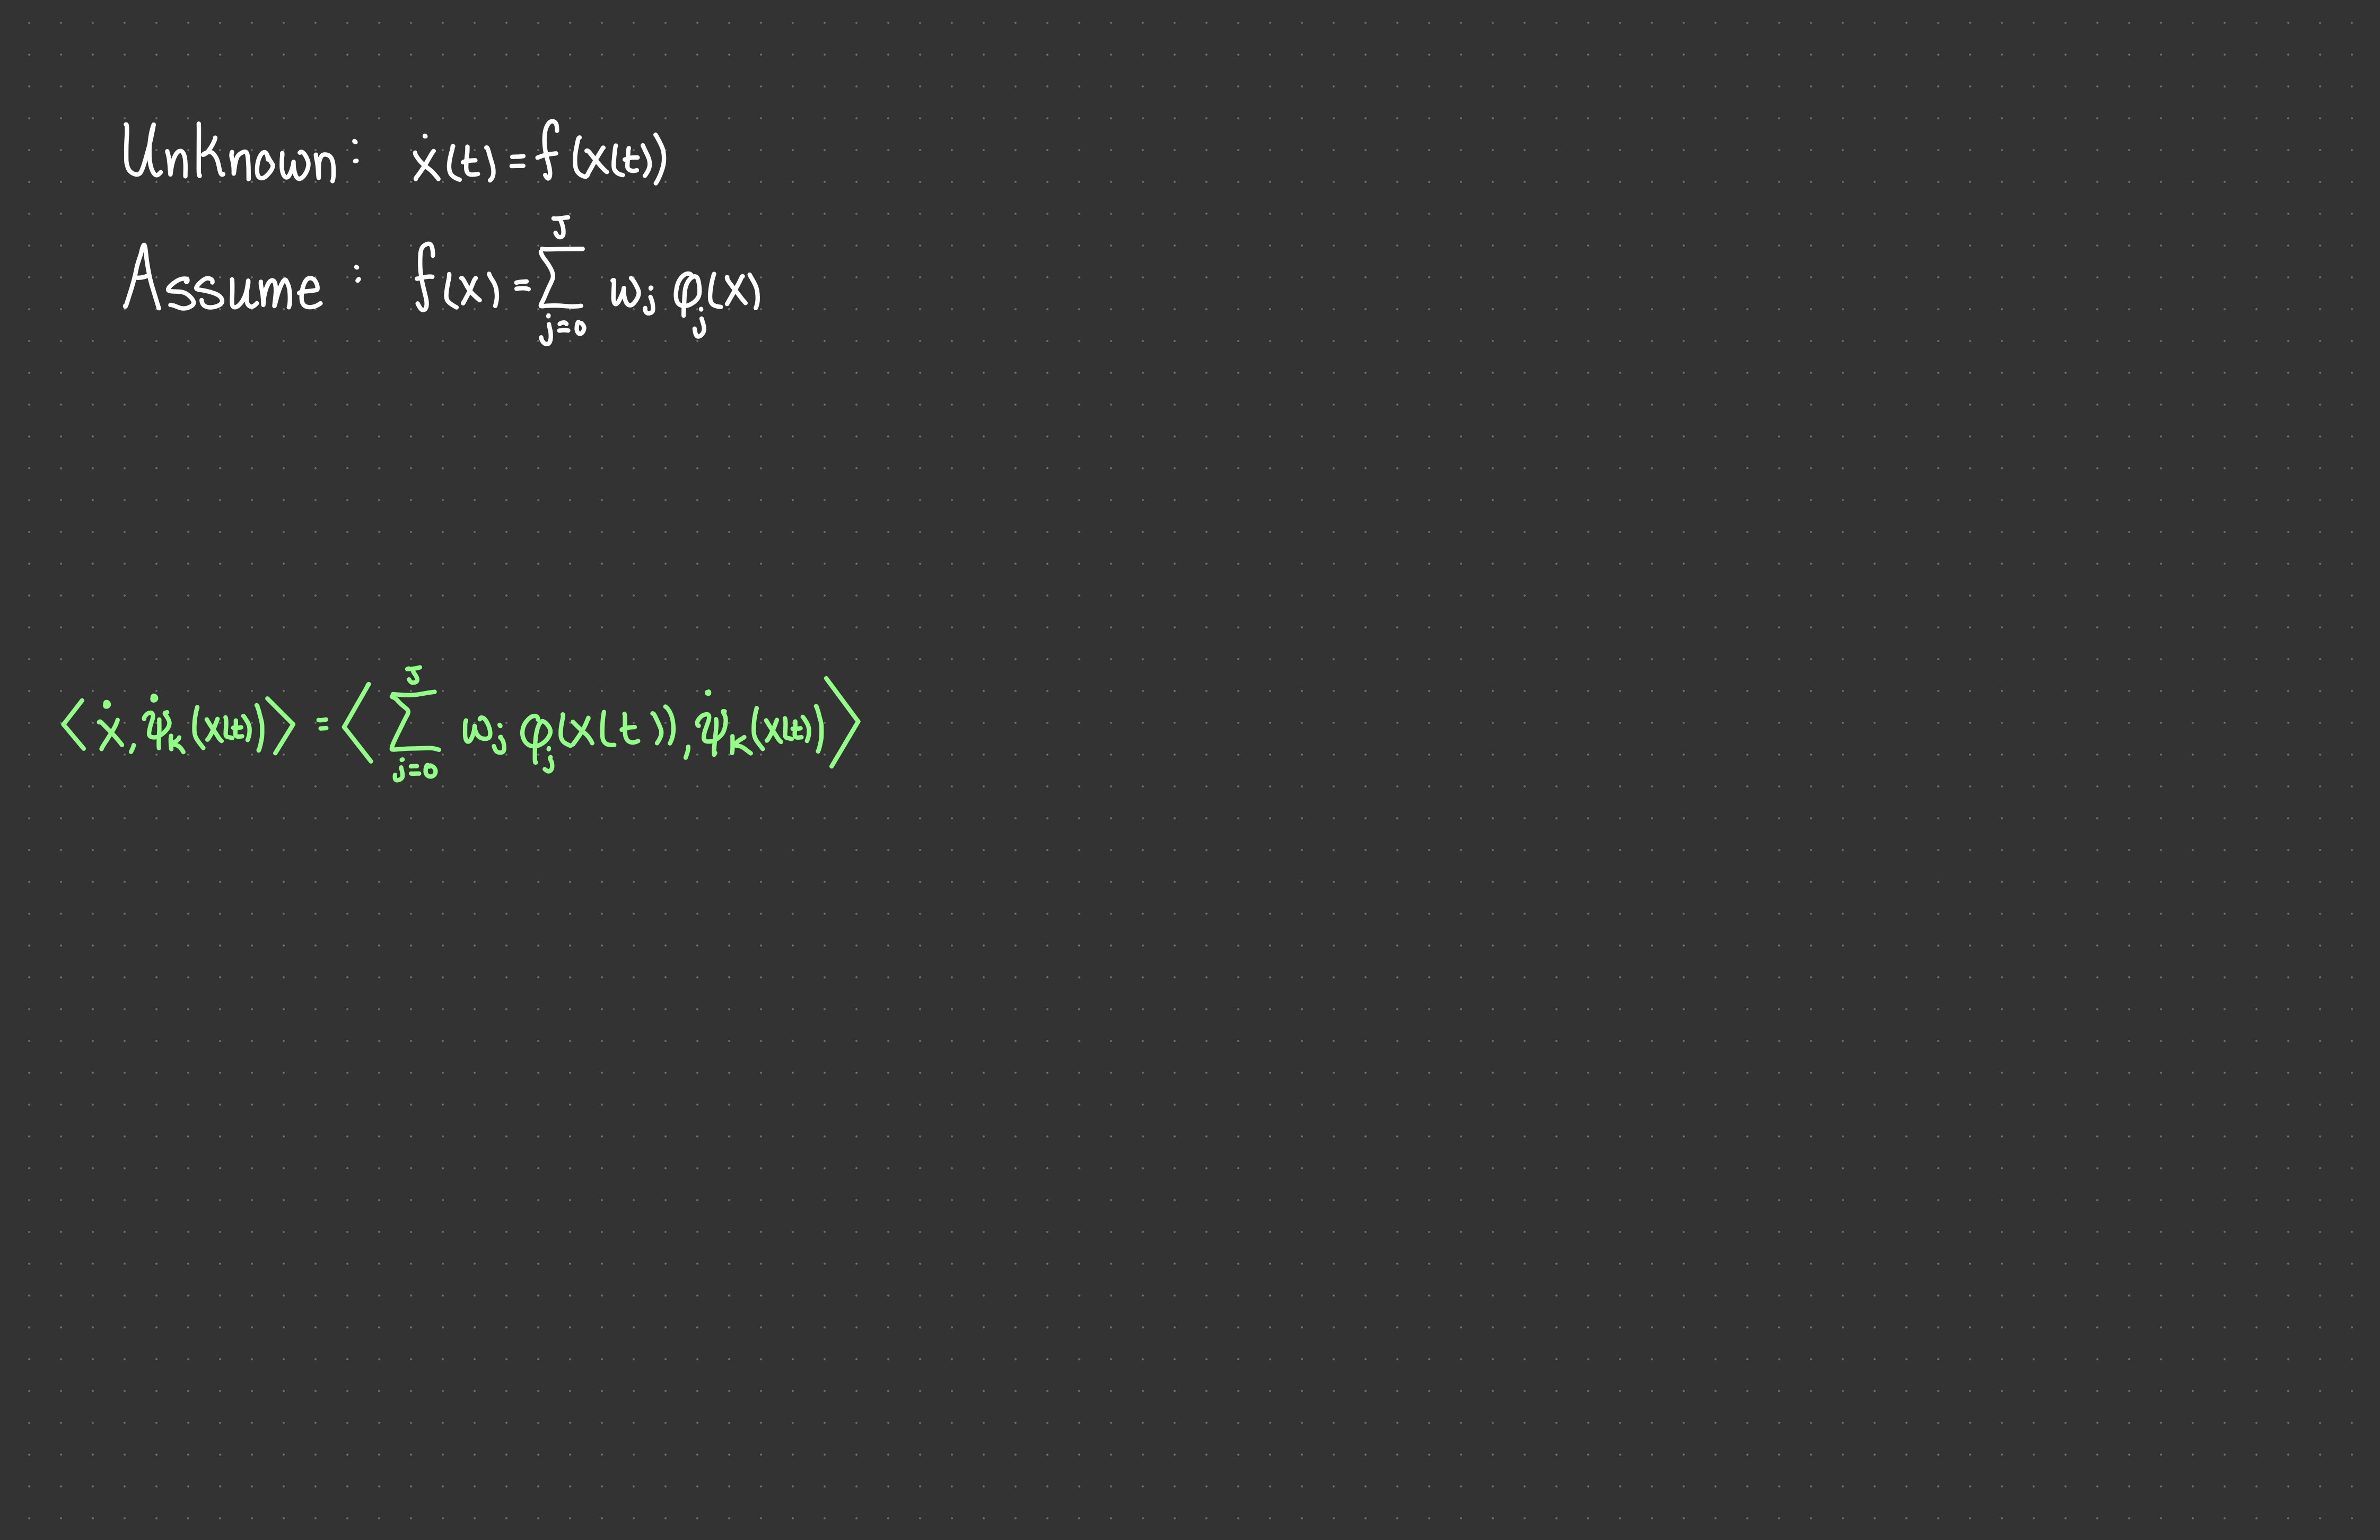 Unknown: ẋ(t) = f(x(t))
Assume: f(x) = ∑_{j=0}^{J} w_j φ_j(x)
⟨ẋ, ψ̇_k(x(t))⟩ = ⟨∑_{j=0}^{J} w_j φ_j(x(t)), ψ̇_k(x(t))⟩